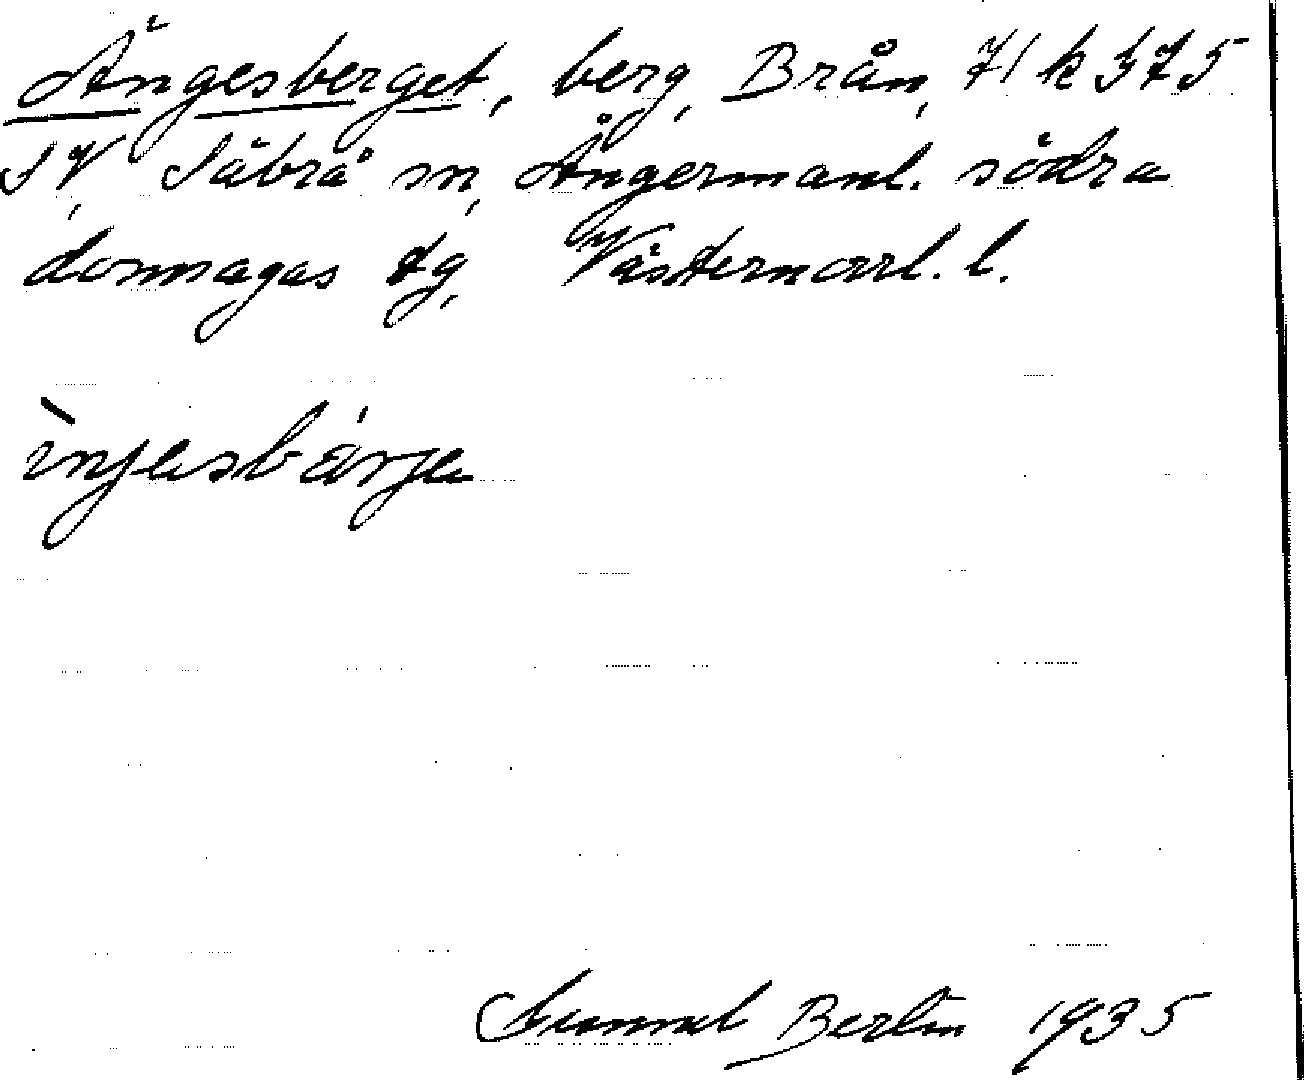 Ängesberget, berg, Brån, 71 k 375
SV, Säbrå sn, Ångermanl. södra
domsagas tg, Västernorrl. l.
ìnjəsbárjə
Gunnel Berlin 1935